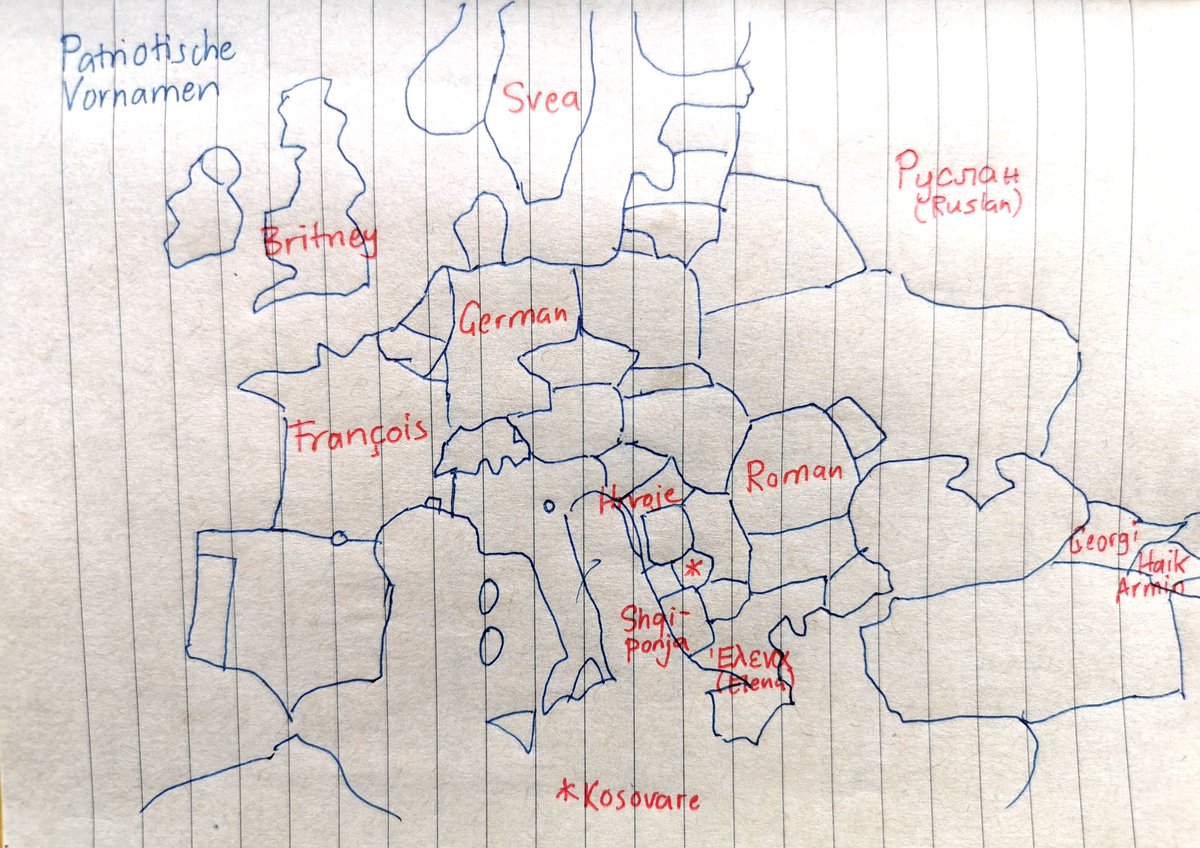 Patriotische
Vornamen
Svea
Руслан
(Ruslan)
Britney
German
François
Roman
Hrvoje
Georgi
Haik
Armin
*
Shqi-
ponja
Έλενα
(Elena)
*Kosovare